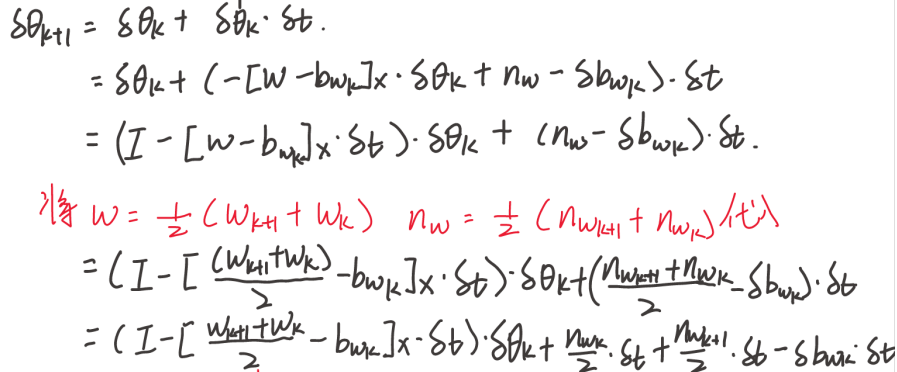 δθk+1 = δθk + δθ̇k · δt.
= δθk + (-[w - bwk]x · δθk + nw - δbwk) · δt
= (I - [w - bwk]x · δt) · δθk + (nw - δbwk) · δt.
将 w = 1/2 (wk+1 + wk) nw = 1/2 (nwk+1 + nwk) 代入
= (I - [(wk+1 + wk)/2 - bwk]x · δt) · δθk + (nwk+1 + nwk/2 - δbwk) · δt
= (I - [wk+1 + wk/2 - bwk]x · δt) · δθk + nwk/2 · δt + nwk+1/2 · δt - δbwk · δt